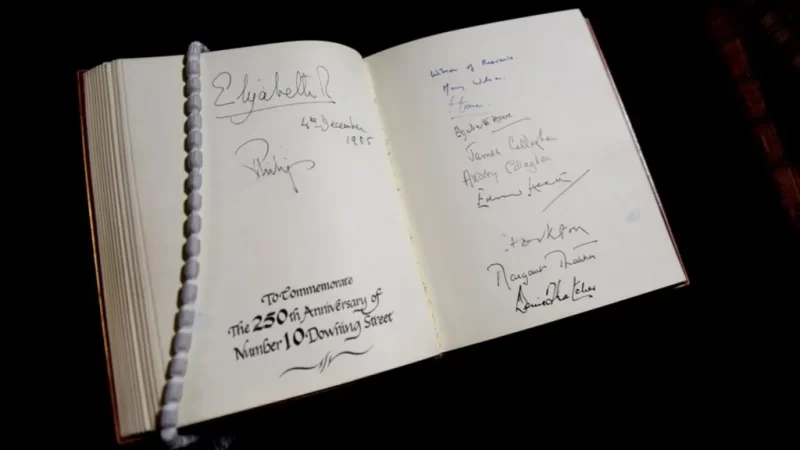 Elizabeth R
4th December
1985
Philip
To Commemorate
The 250th Anniversary of
Number 10 Downing Street
Wilson of Rievaulx
Mary Wilson.
Home
Elizabeth Home
James Callaghan
Audrey Callaghan
Edward Heath
Stockton
Margaret Thatcher
Denis Thatcher